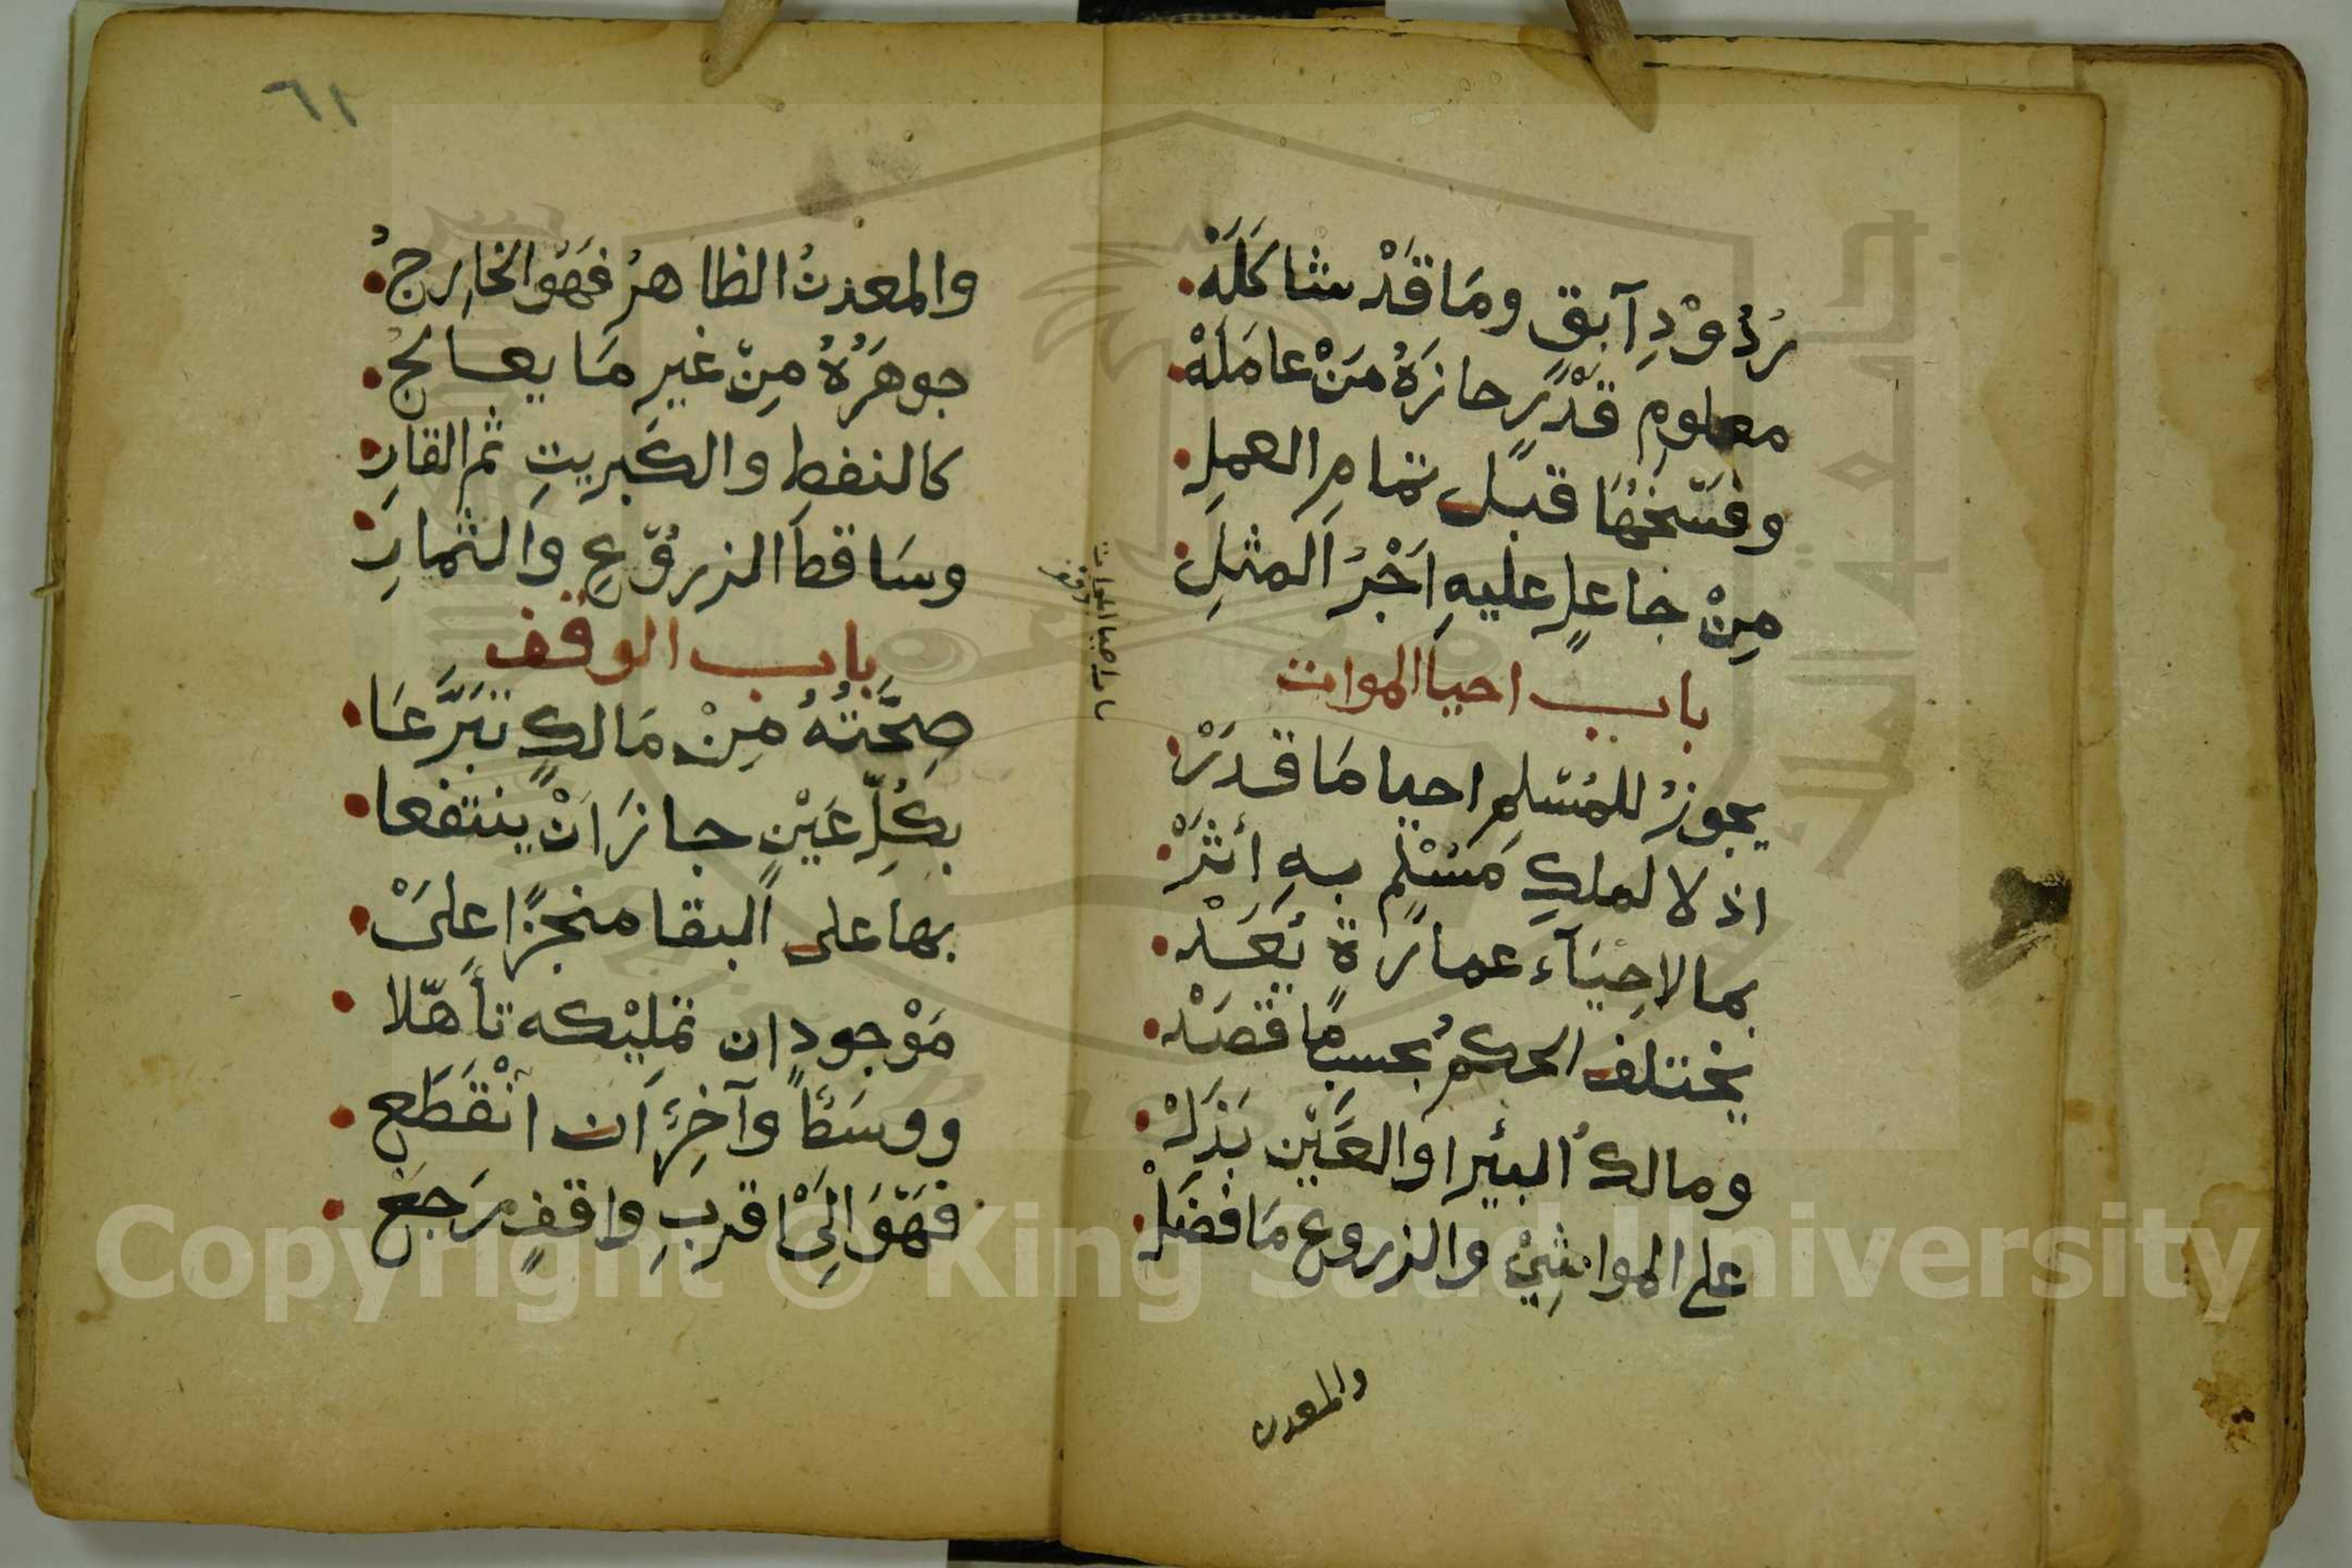 رُدُوْدِ آبِقٍ ومَا قَدْ شاكَلَهْ
معلومِ قَدْرٍ حازَهُ مَنْ عامَلَهْ
وفَسْخُهَا قبلَ تمامِ العملِ
مِنْ جاعلٍ عليهِ اَجْرُ المثلِ
باب احيا الموات
يجوزُ للمُسْلِمِ احيا مَا قَدَرْ
اذ لا لملكِ مُسْلِمٍ بهِ أثَرْ
بما لاحِيَآءِ عمارَةٍ يُعَدْ
يختلف الحكمُ بحسبِ مَا قَصَدْ
ومالكُ البئرِ او العَيْنِ بَذَلْ
على المواشِيْ والزروعِ مَا فَضَلْ
والمعدن
باب احيا الموات
وقف
٦١
والمعدنُ الظاهرُ فهَوَ الخارِجُ
جوهَرُهُ مِنْ غيرِ مَا يعالجُ
كالنفطِ والكبريتِ ثم القارِ
وسَاقطِ الزروْعِ والثمارِ
باب الوقف
صِحَّتُهُ مِنْ مَالكٍ تبَرَّعَا
بكُلِّ عَيْنٍ جازَ اَنْ ينتفعا
بها على البقا منجزًا علىْ
مَوْجودٍ ان تمليْكه تأهّلا
ووسَطًا وآخِرًا ان انْقَطَعْ
فهَوَ الىْ اقربِ واقفٍ رَجَعْ
Copyright © King Saud University
جامعة الملك سعود